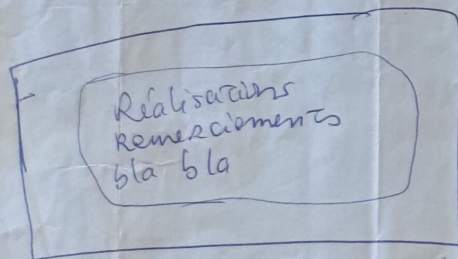 Réalisations
Remerciements
bla bla